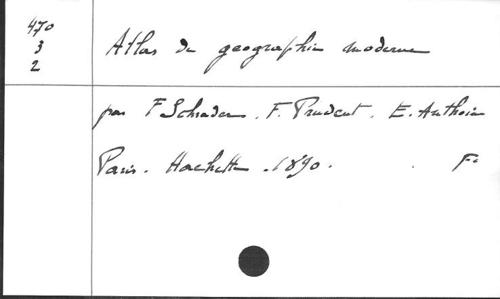 470
3
2
Atlas de geographie moderne
par F Schrader . F. Prudent . E. Anthoine
Paris . Hachette . 1890 . F°